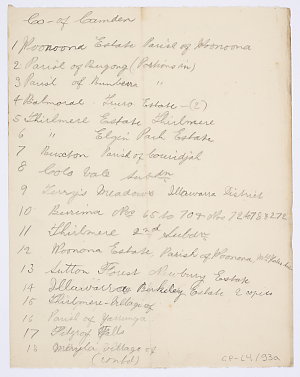 Co- of Camden
1 Woonoona Estate Parish of Woonoona
2 Parish of Bugong (Portions in)
3 Parish of Bunberra "
4 Balmoral - Estate - (2)
5 Thirlmere Estate Thirlmere
6 " Elgin Park Estate
7 Buxton Parish of Couridjah
8 Colo Vale Subdn
9 Terry's Meadows Illawarra District
10 Berrima Nos 65 to 70 & Nos 72 & 78 & 272
11 Thirlmere 2nd Subdn
12 Woonona Estate Parish of Woonona
13 Sutton Forest Newbury Estate
14 Illawarra Berkeley Estate 2 copies
15 Thirlmere - Village of
16 Parish of Yarrunga
17 Fitzroy Falls
18 Meryla, Village of
(contd)
CP-L4/93a